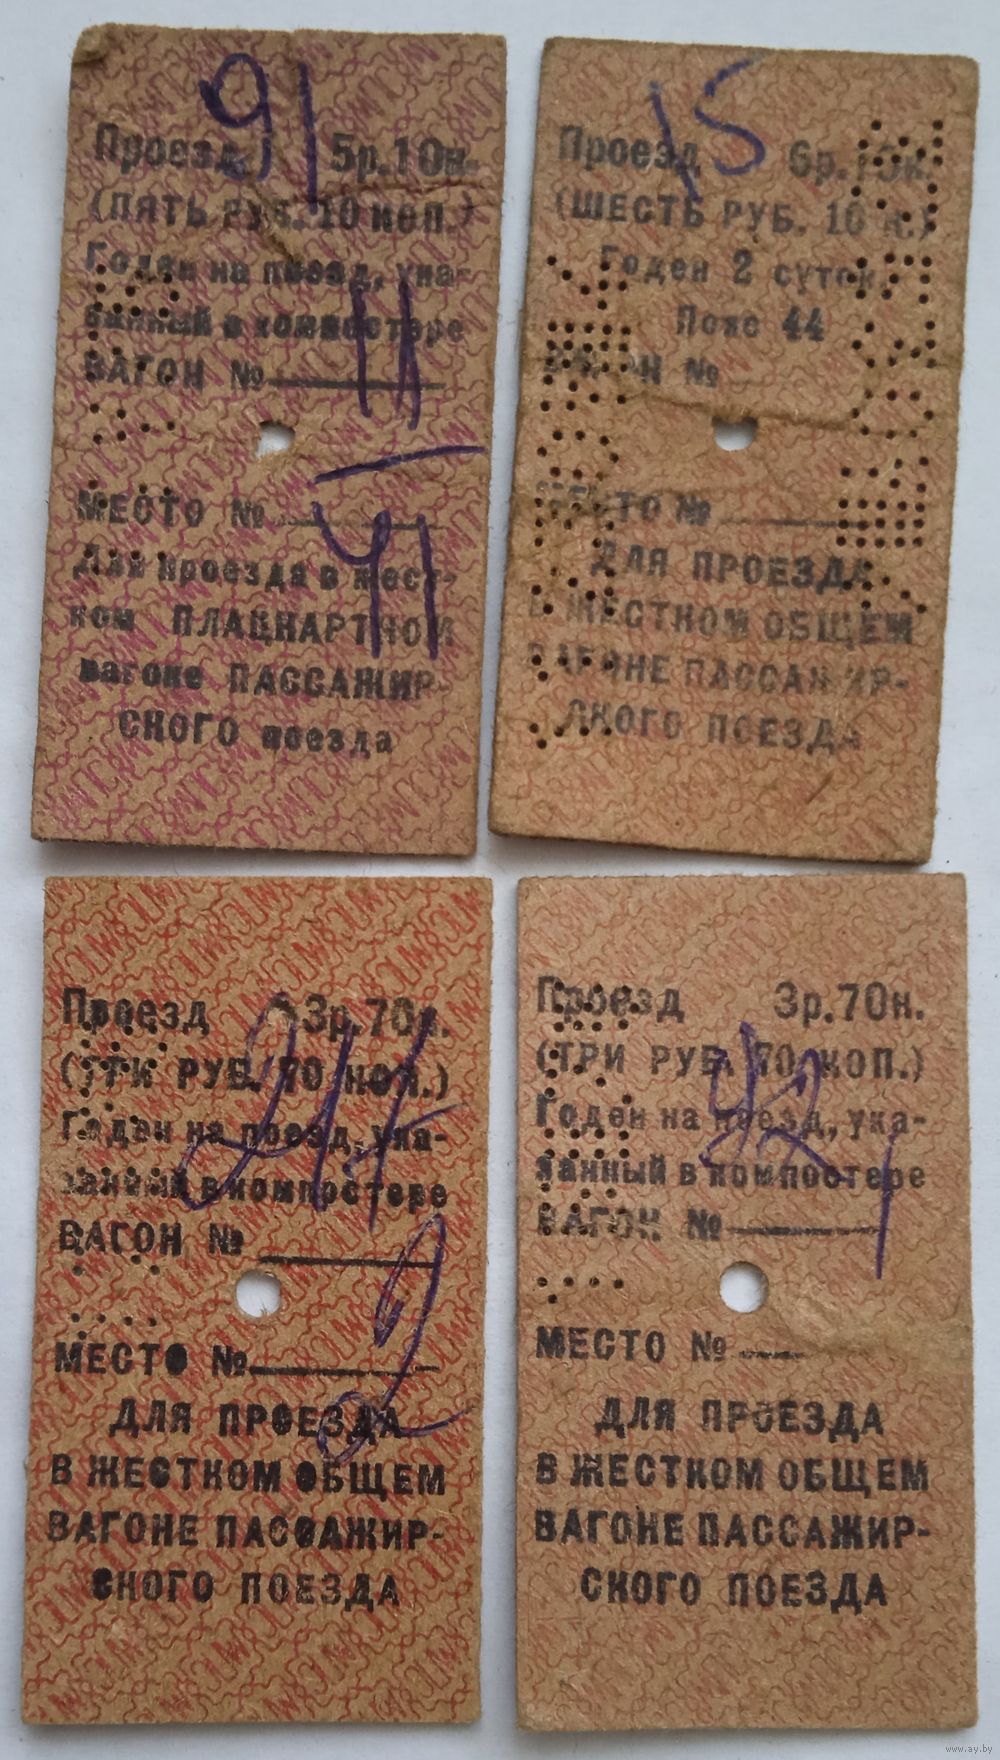 91
Проезд 5р.10к.
(ПЯТЬ РУБ. 10 КОП.)
Годен на поезд, ука-
занный в компостере
ВАГОН №
11
МЕСТО №
41
Для проезда в жест-
ком ПЛАЦКАРТНОМ
вагоне ПАССАЖИР-
СКОГО поезда
15
Проезд 6р.10к.
(ШЕСТЬ РУБ. 10 к.)
Годен 2 суток
Пояс 44
ВАГОН №
МЕСТО №
ДЛЯ ПРОЕЗДА
В ЖЕСТКОМ ОБЩЕМ
ВАГОНЕ ПАССАЖИР-
СКОГО ПОЕЗДА
Проезд 3р.70к.
(ТРИ РУБ. 70 КОП.)
Годен на поезд, ука-
занный в компостере
ВАГОН №
МЕСТО №
ДЛЯ ПРОЕЗДА
В ЖЕСТКОМ ОБЩЕМ
ВАГОНЕ ПАССАЖИР-
СКОГО ПОЕЗДА
Проезд 3р.70к.
(ТРИ РУБ. 70 КОП.)
Годен на поезд, ука-
занный в компостере
ВАГОН №
МЕСТО №
ДЛЯ ПРОЕЗДА
В ЖЕСТКОМ ОБЩЕМ
ВАГОНЕ ПАССАЖИР-
СКОГО ПОЕЗДА
www.ay.by